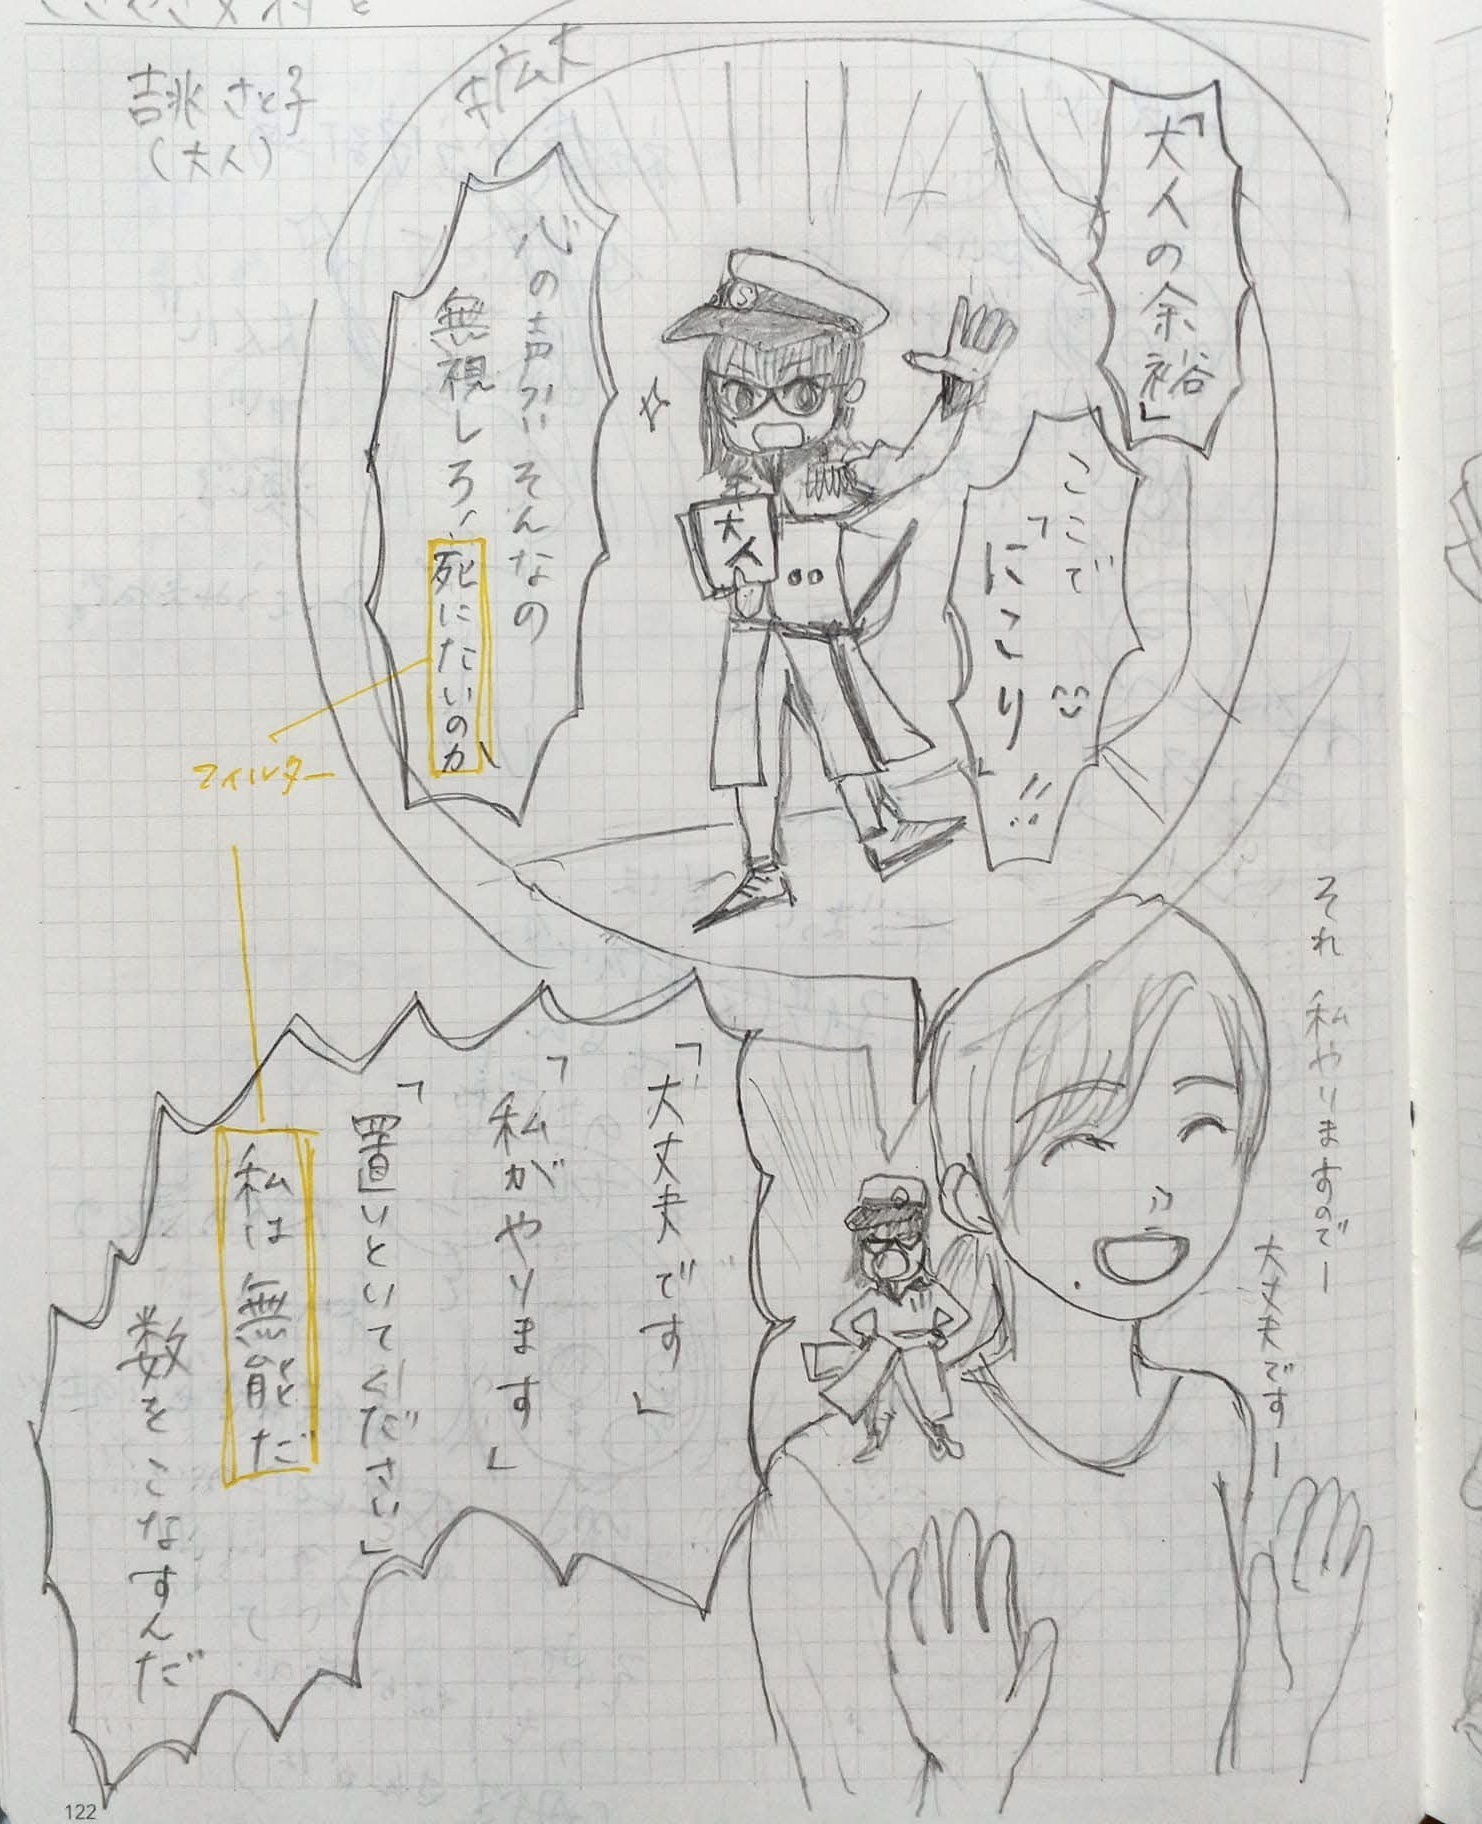 吉兆 さと子
(大人)
拡大
「大人の余裕」
ここで
「にこり」!!
心の声?そんなの
無視しろ、死にたいのか
フィルター
S
大人
それ 私やりますのでー
大丈夫ですー
「大丈夫です」
「私がやります」
「置いといてください」
私は無能だ
数をこなすんだ
122